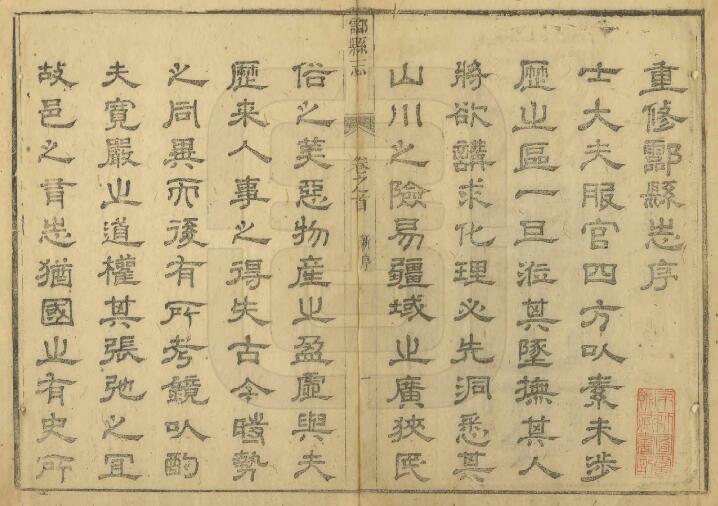 重修酃縣志序
士大夫服官四方以素未涉
歷之區一旦涖其墜撫其人
將欲講求化理必先洞悉其
山川之險易疆域之廣狹民
酃縣志 卷之首 新序 一
俗之美惡物產之盈虛與夫
歷來人事之得失古今時勢
之同異而後有所考鏡以酌
夫寬嚴之道權其張弛之宜
故邑之有志猶國之有史所